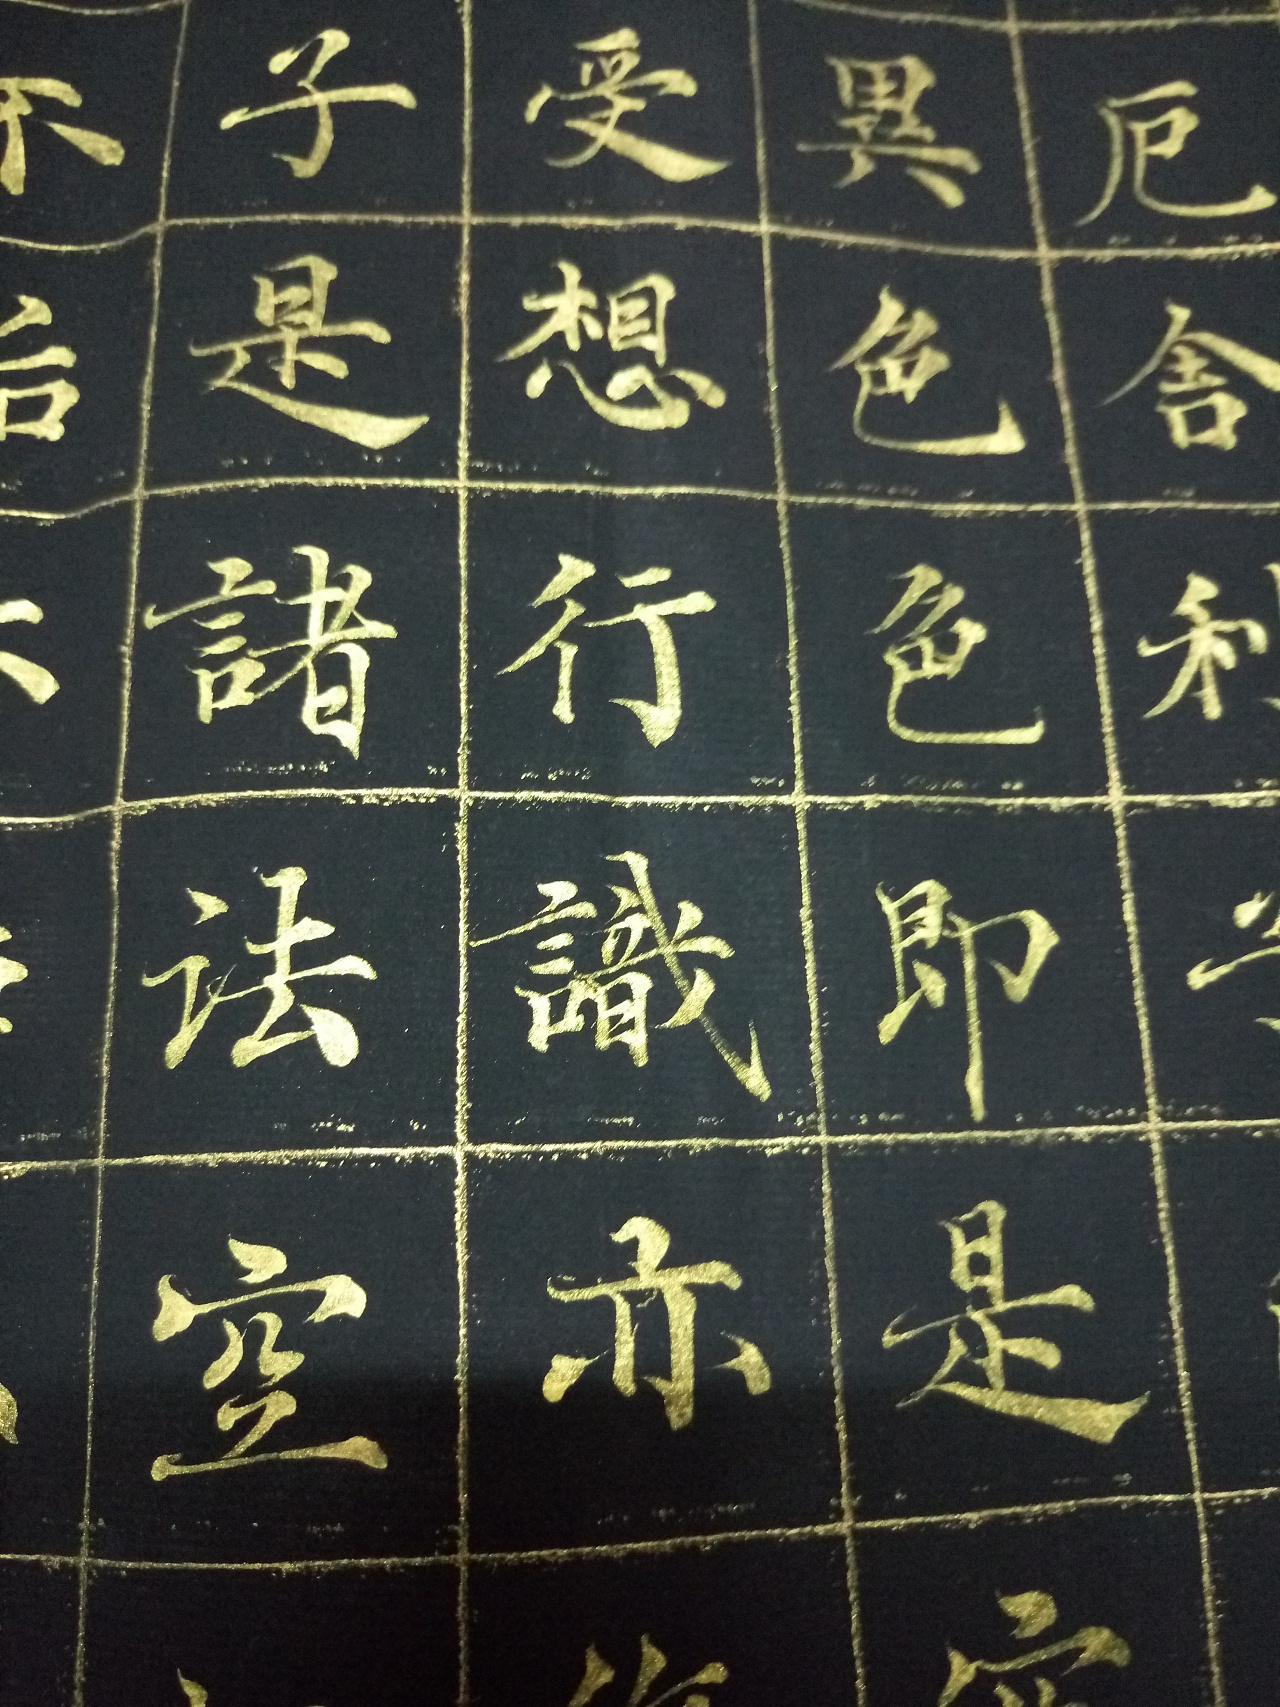 厄舍利
異色色即是空
受想行識亦
子是諸法空
不